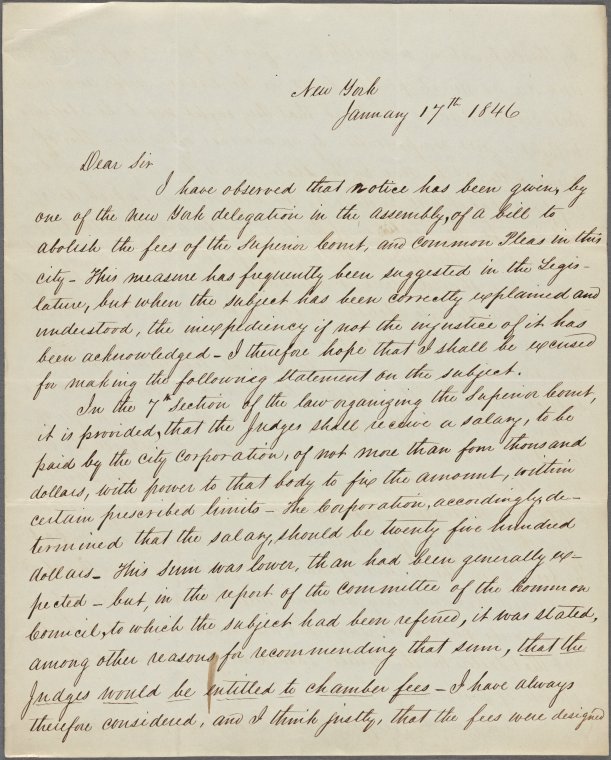 New York
January 17th 1846
Dear Sir
I have observed that notice has been given, by
one of the New York delegation in the Assembly, of a bill to
abolish the fees of the Superior Court, and Common Pleas in this
city - This measure has frequently been suggested in the Legis-
lature, but when the subject has been correctly explained and
understood, the inexpediency if not the injustice of it has
been acknowledged - I therefore hope that I shall be excused
for making the following statement on the subject.
In the 7th section of the law organizing the Superior Court,
it is provided, that the Judges shall receive a salary, to be
paid by the city corporation, of not more than four thousand
dollars, with power to that body to fix the amount, within
certain prescribed limits - The Corporation, accordingly, de-
termined that the salary, should be twenty five hundred
dollars - This sum was lower, than had been generally ex-
pected - but, in the report of the committee of the Common
Council, to which the subject had been refered, it was stated,
among other reasons for recommending that sum, that the
Judges would be entitled to chamber fees - I have always
therefore considered, and I think justly, that the fees were designed